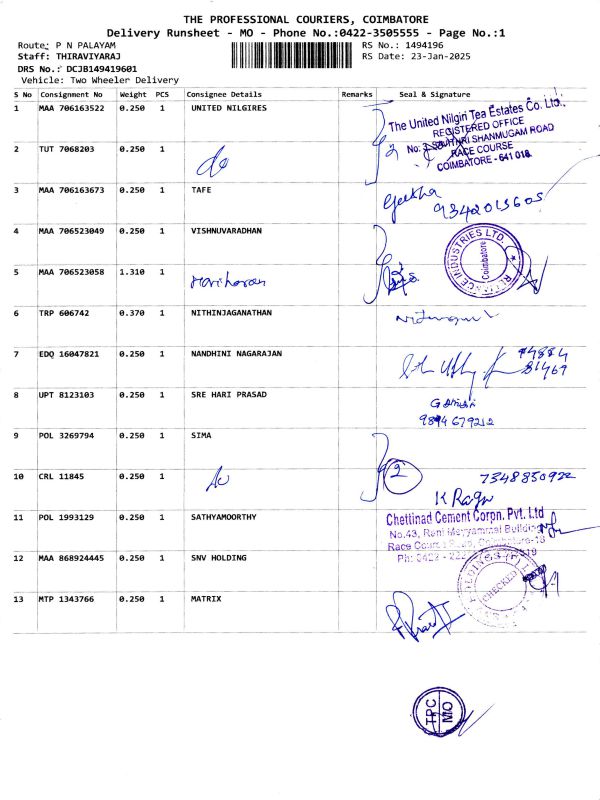 THE PROFESSIONAL COURIERS, COIMBATORE
Delivery Runsheet - MO - Phone No.:0422-3505555 - Page No.:1
Route: P N PALAYAM RS No.: 1494196
Staff: THIRAVIYARAJ RS Date: 23-Jan-2025
DRS No.: DCJB149419601
Vehicle: Two Wheeler Delivery
S No Consignment No Weight PCS Consignee Details Remarks Seal & Signature
1 MAA 706163522 0.250 1 UNITED NILGIRES
The United Nilgiri Tea Estates Co. Ltd.,
REGISTERED OFFICE
No: 3, SAVITHRI SHANMUGAM ROAD
RACE COURSE
COIMBATORE - 641 018.
2 TUT 7068203 0.250 1 do 2
3 MAA 706163673 0.250 1 TAFE
Geetha
9342013605
4 MAA 706523049 0.250 1 VISHNUVARADHAN
INDUSTRIES LTD.
Coimbatore
5 MAA 706523058 1.310 1 Hariharan 2
6 TRP 606742 0.370 1 NITHINJAGANATHAN
7 EDQ 16047821 0.250 1 NANDHINI NAGARAJAN
81467
8 UPT 8123103 0.250 1 SRE HARI PRASAD
9894679212
9 POL 3269794 0.250 1 SIMA
10 CRL 11845 0.250 1 do 2 7348850922
K Ragu
11 POL 1993129 0.250 1 SATHYAMOORTHY
Chettinad Cement Corpn. Pvt. Ltd
No.43, Rani Meyyammai Building
Race Course Coimbatore-18
Ph: 0422 -
12 MAA 868924445 0.250 1 SNV HOLDING
HOLDINGS (P) L
CHECKED
13 MTP 1343766 0.250 1 MATRIX
TPC
MO